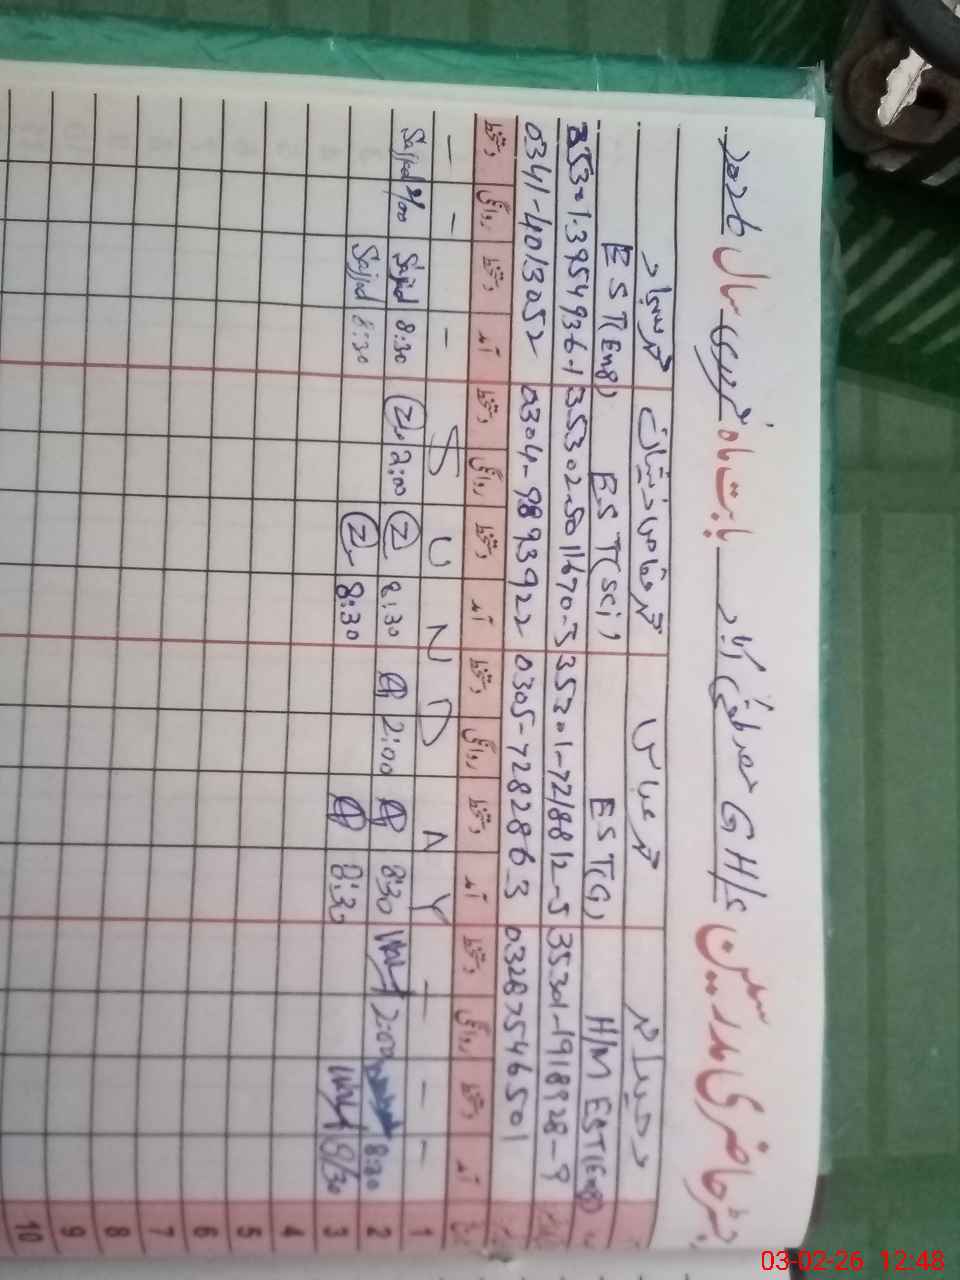 رجسٹر حاضری مدرسین سکول GH/S آباد بابت ماہ فروری سال 2026
وحید احمد محمد عباس محمد سجاد
H/M EST(Eng) EST(G) EST(Sci) EST(Eng)
35301-1918928-9 35301-7218812-5 35302-5011670-3 35301-3954936-1
03287546501 0305-7282863 0304-9893922 0341-4013052
آمد دستخط روانگی دستخط آمد دستخط روانگی دستخط آمد دستخط روانگی دستخط آمد دستخط روانگی دستخط
1 - - - S U N D A Y - - -
2 8:30 2:00 8:30 2:00 8:30 2:00 8:30 Sajjad 2/00 Sajjad
3 8/30 8:30 8:30 8:30 Sajjad
4
5
6
7
8
9
10
03-02-26 12:48